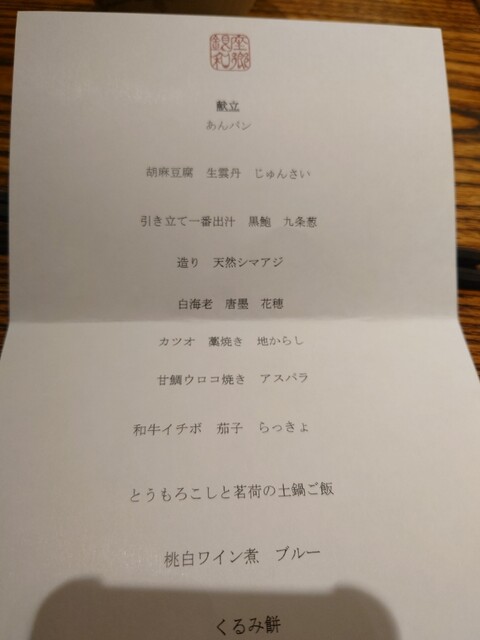 献立
あんパン
胡麻豆腐　生雲丹　じゅんさい
引き立て一番出汁　黒鮑　九条葱
造り　天然シマアジ
白海老　唐墨　花穂
カツオ　藁焼き　地からし
甘鯛ウロコ焼き　アスパラ
和牛イチボ　茄子　らっきょ
とうもろこしと茗荷の土鍋ご飯
桃白ワイン煮　ブルー
くるみ餅